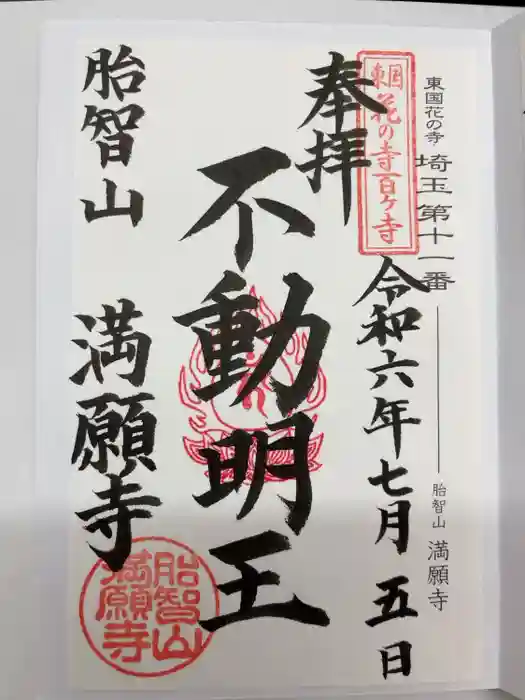 東国花の寺 埼玉第十一番
胎智山 満願寺
東国花の寺百ケ寺
奉拝
令和六年七月五日
不動明王
胎智山 満願寺
胎智山満願寺